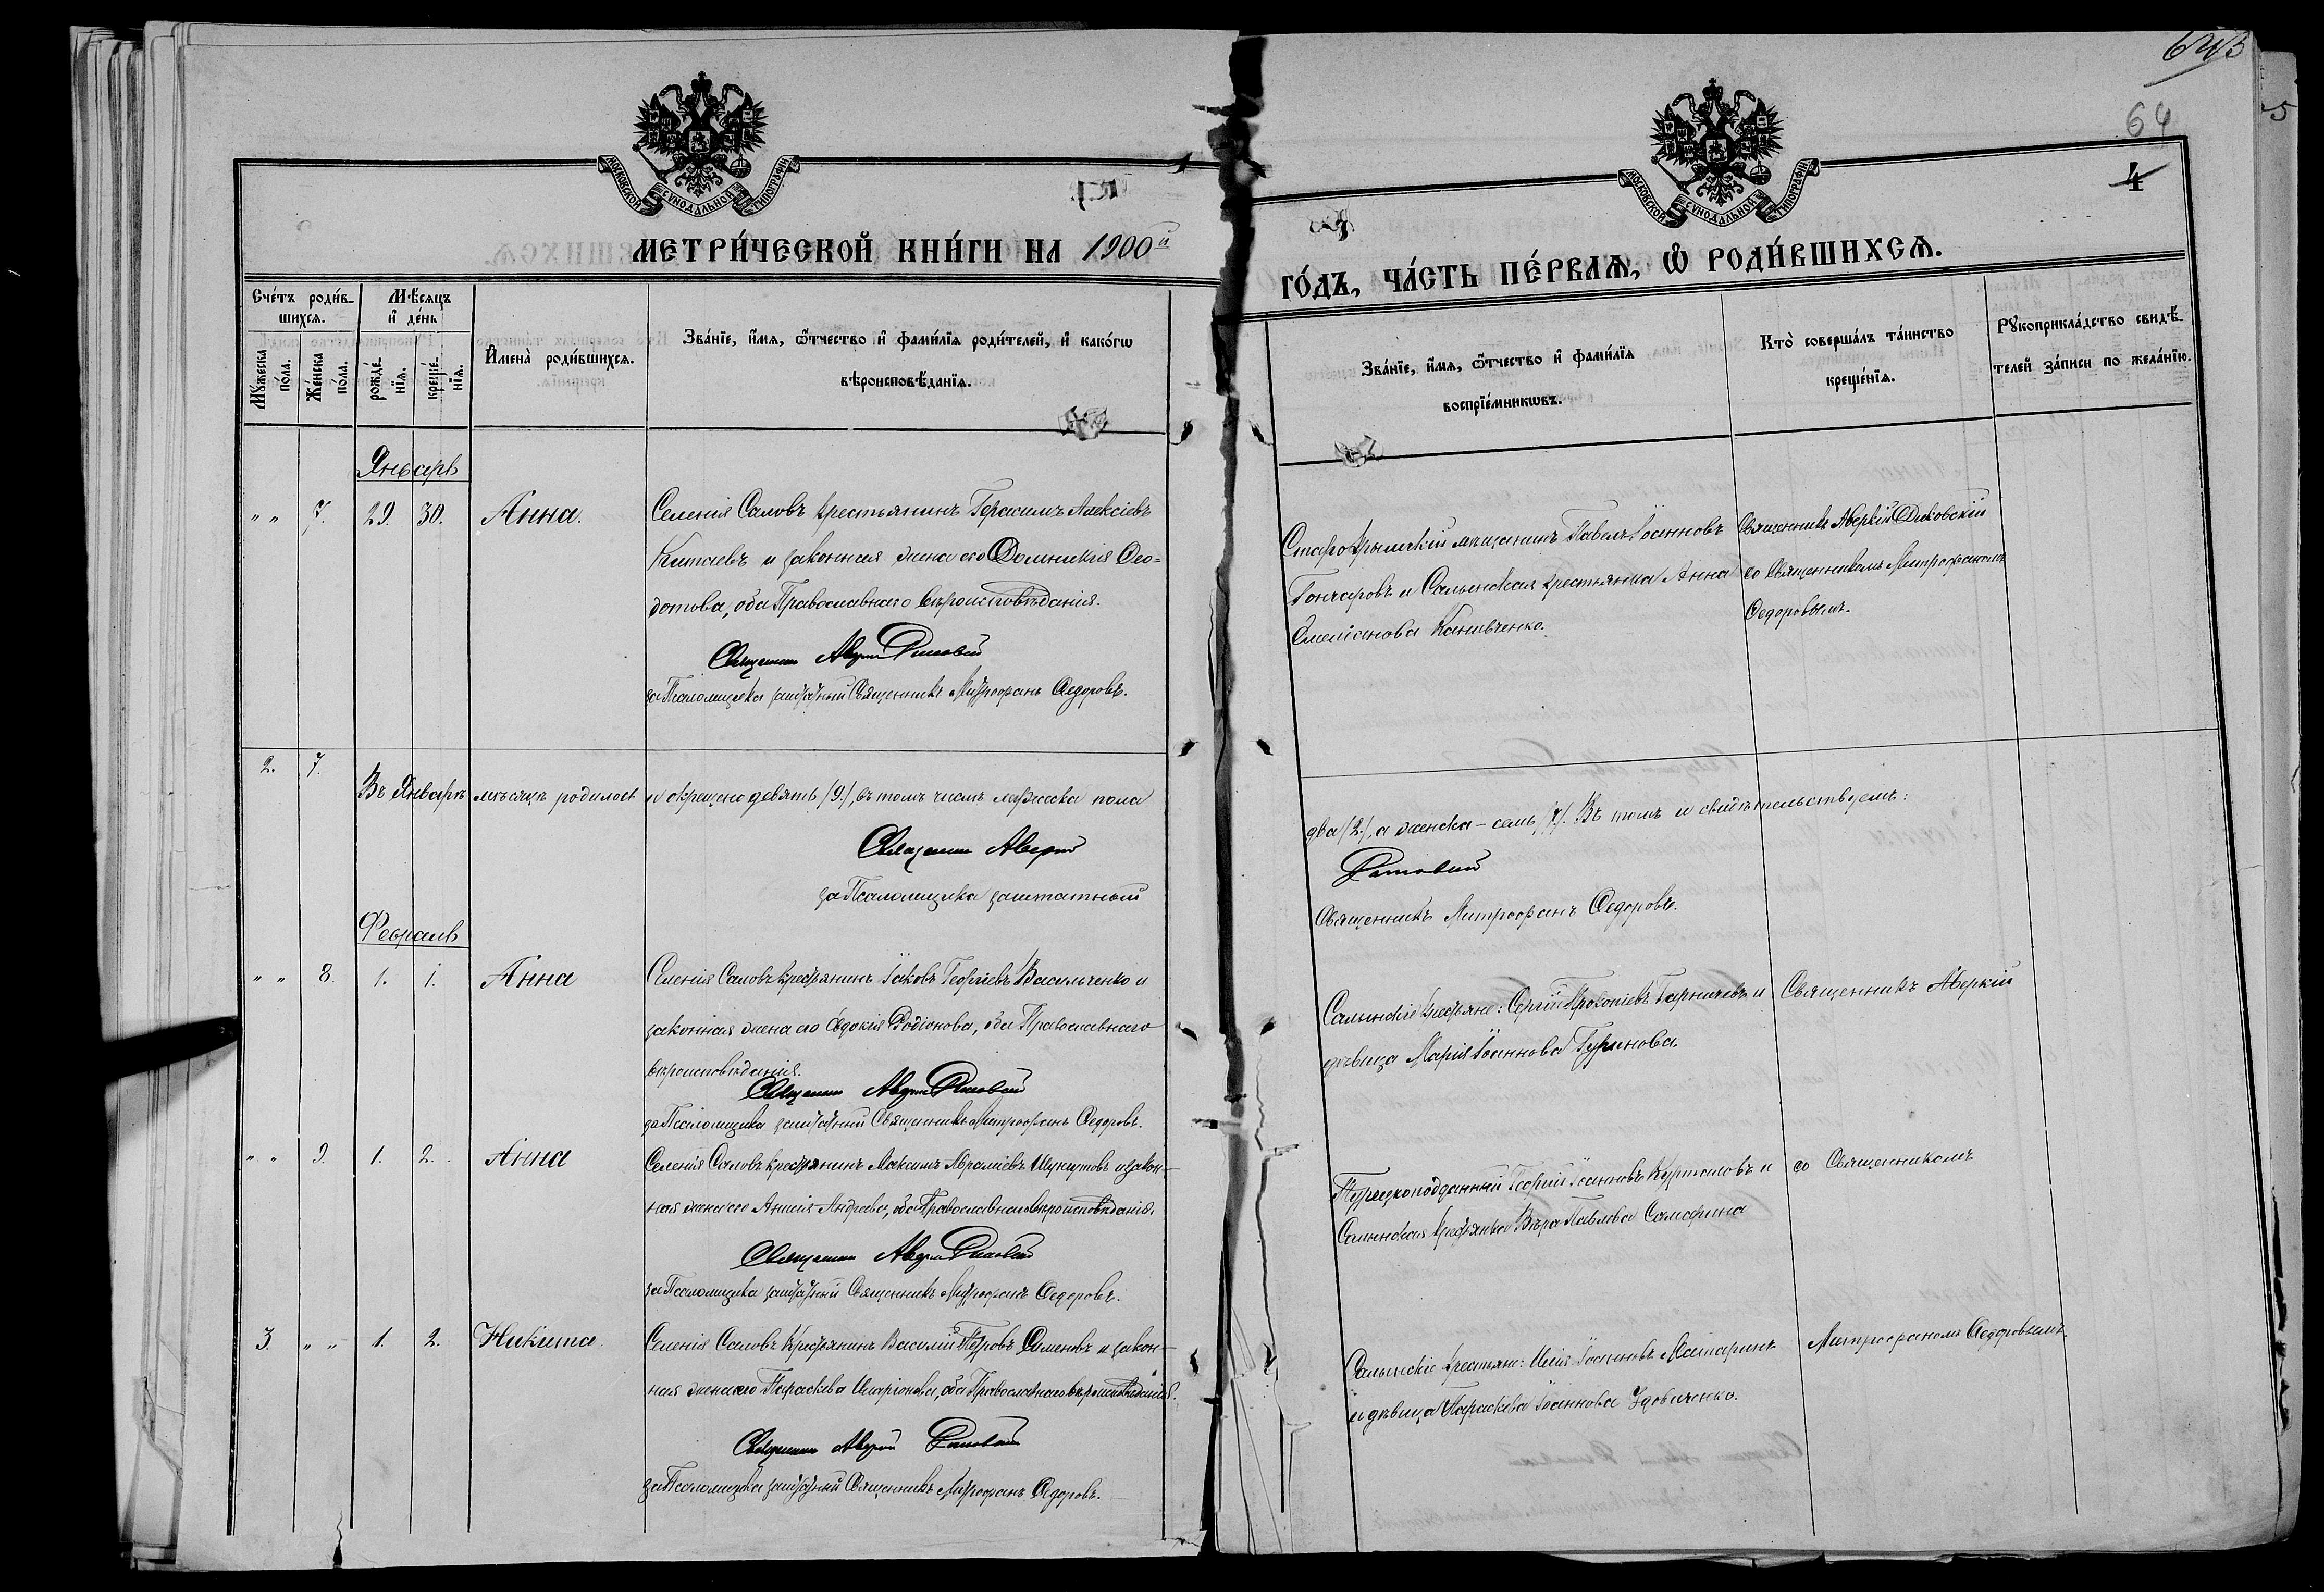 643
64
4
МОСКОВСКОЙ СѴНОДАЛЬНОЙ ТИПОГРАФІИ
МОСКОВСКОЙ СѴНОДАЛЬНОЙ ТИПОГРАФІИ
МЕТРИ́ЧЕСКОЙ КНИ́ГИ НА 1900й
ГО́ДЪ, ЧА́СТЬ ПЕ́РВАѦ, Ѡ҆ РОДИ́ВШИХСѦ.
Сче́тъ роди́в-
шихсѧ.
Мꙋ́жеска
по́ла.
Же́нска
по́ла.
Мѣ́сяцъ
и҆ де́нь
рожде́-
нїѧ.
креще́-
нїѧ.
И҆мена̀ роди́вшихсѧ.
Зва́нїе, и҆́мѧ, ѻ҆́тчество и҆ фами́лїѧ роди́телей, и҆ како́гѡ
вѣроисповѣ́данїѧ.
Зва́нїе, и҆́мѧ, ѻ҆́тчество и҆ фами́лїѧ
воспрїе́мникѡвъ.
Кто̀ соверша́лъ та́инство
креще́нїѧ.
Рꙋкоприкла́дство свидѣ́-
телей за́писи по жела́нїю.
Январь
" " 7. 29. 30. Анна.
Селенія Саловъ крестьянинъ Герасимъ Алексіевъ
Китаевъ и законная жена его Домникія Ѳео-
дотова, оба Православнаго вѣроисповѣданія.
Священникъ Аверкій
за Псаломщика заштатный Священникъ Митрофанъ Ѳедоровъ.
Старокрымскій мѣщанинъ Павелъ Іоанновъ
Гончаровъ и Салынская крестьянка Анна
Емеліанова
Священникъ Аверкій
со Священникомъ Митрофаномъ
Ѳедоровымъ.
2. 7.
Въ Январѣ мѣсяцѣ родилось и окрещено девять /9./, въ томъ числѣ мужеска пола
два /2./, а женска - семь /7/. Въ томъ и свидѣтельствуемъ:
Священникъ Аверкій
за Псаломщика заштатный
Священникъ Митрофанъ Ѳедоровъ.
Февраль
" " 8. 1. 1. Анна
Селенія Саловъ крестьянинъ Іаковъ Георгіевъ Васильченко и
законная жена его Евдокія Родіонова, оба Православнаго
вѣроисповѣданія.
Священникъ Аверкій
за Псаломщика заштатный Священникъ Митрофанъ Ѳедоровъ.
Салынскіе крестьяне: Сергій Прокопіевъ и
дѣвица Марія Іоаннова
Священникъ Аверкій
" " 9. 1. 2. Анна
Селенія Саловъ крестьянинъ Максимъ Шункутовъ и закон-
ная жена его Андреева, оба Православнаго вѣроисповѣданія.
Священникъ Аверкій
за Псаломщика заштатный Священникъ Митрофанъ Ѳедоровъ.
Турецкоподданный Георгій Іоанновъ и
Салынская крестьянка Вѣра Павлова Самарина
со Священникомъ
3. " " 1. 2. Никита.
Селенія Саловъ крестьянинъ Василій Петровъ Семеновъ и закон-
ная жена его Параскева Иларіонова, оба Православнаго вѣроисповѣданія.
Священникъ Аверкій
за Псаломщика заштатный Священникъ Митрофанъ Ѳедоровъ.
Салынскіе крестьяне: Илія Іоанновъ
и дѣвица Параскева Іоаннова Удовиченко.
Митрофаномъ Ѳедоровымъ.